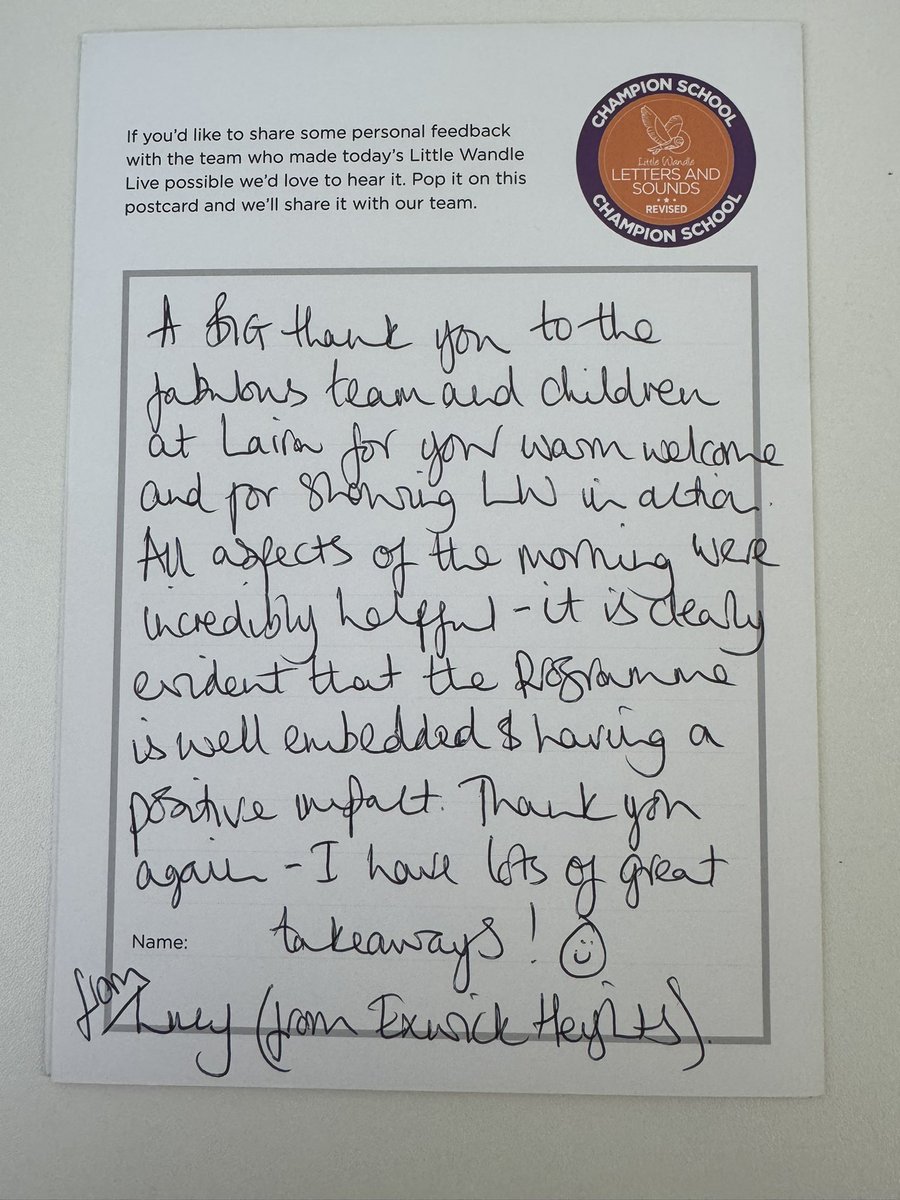 If you'd like to share some personal feedback
with the team who made today's Little Wandle
Live possible we'd love to hear it. Pop it on this
postcard and we'll share it with our team.
CHAMPION SCHOOL
Little Wandle
LETTERS AND
SOUNDS
REVISED
CHAMPION SCHOOL
A BIG thank you to the
fabulous team and children
at Laira for your warm welcome
and for showing LW in action.
All aspects of the morning were
incredibly helpful - it is clearly
evident that the programme
is well embedded & having a
positive impact. Thank you
again - I have lots of great
takeaways!
Name:
from
Lucy (from Exwick Heights).